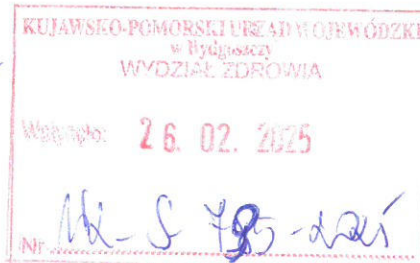 KUJAWSKO-POMORSKI URZĄD WOJEWÓDZKI
w Bydgoszczy
WYDZIAŁ ZDROWIA
Wpłynęło: 26. 02. 2025
Nr